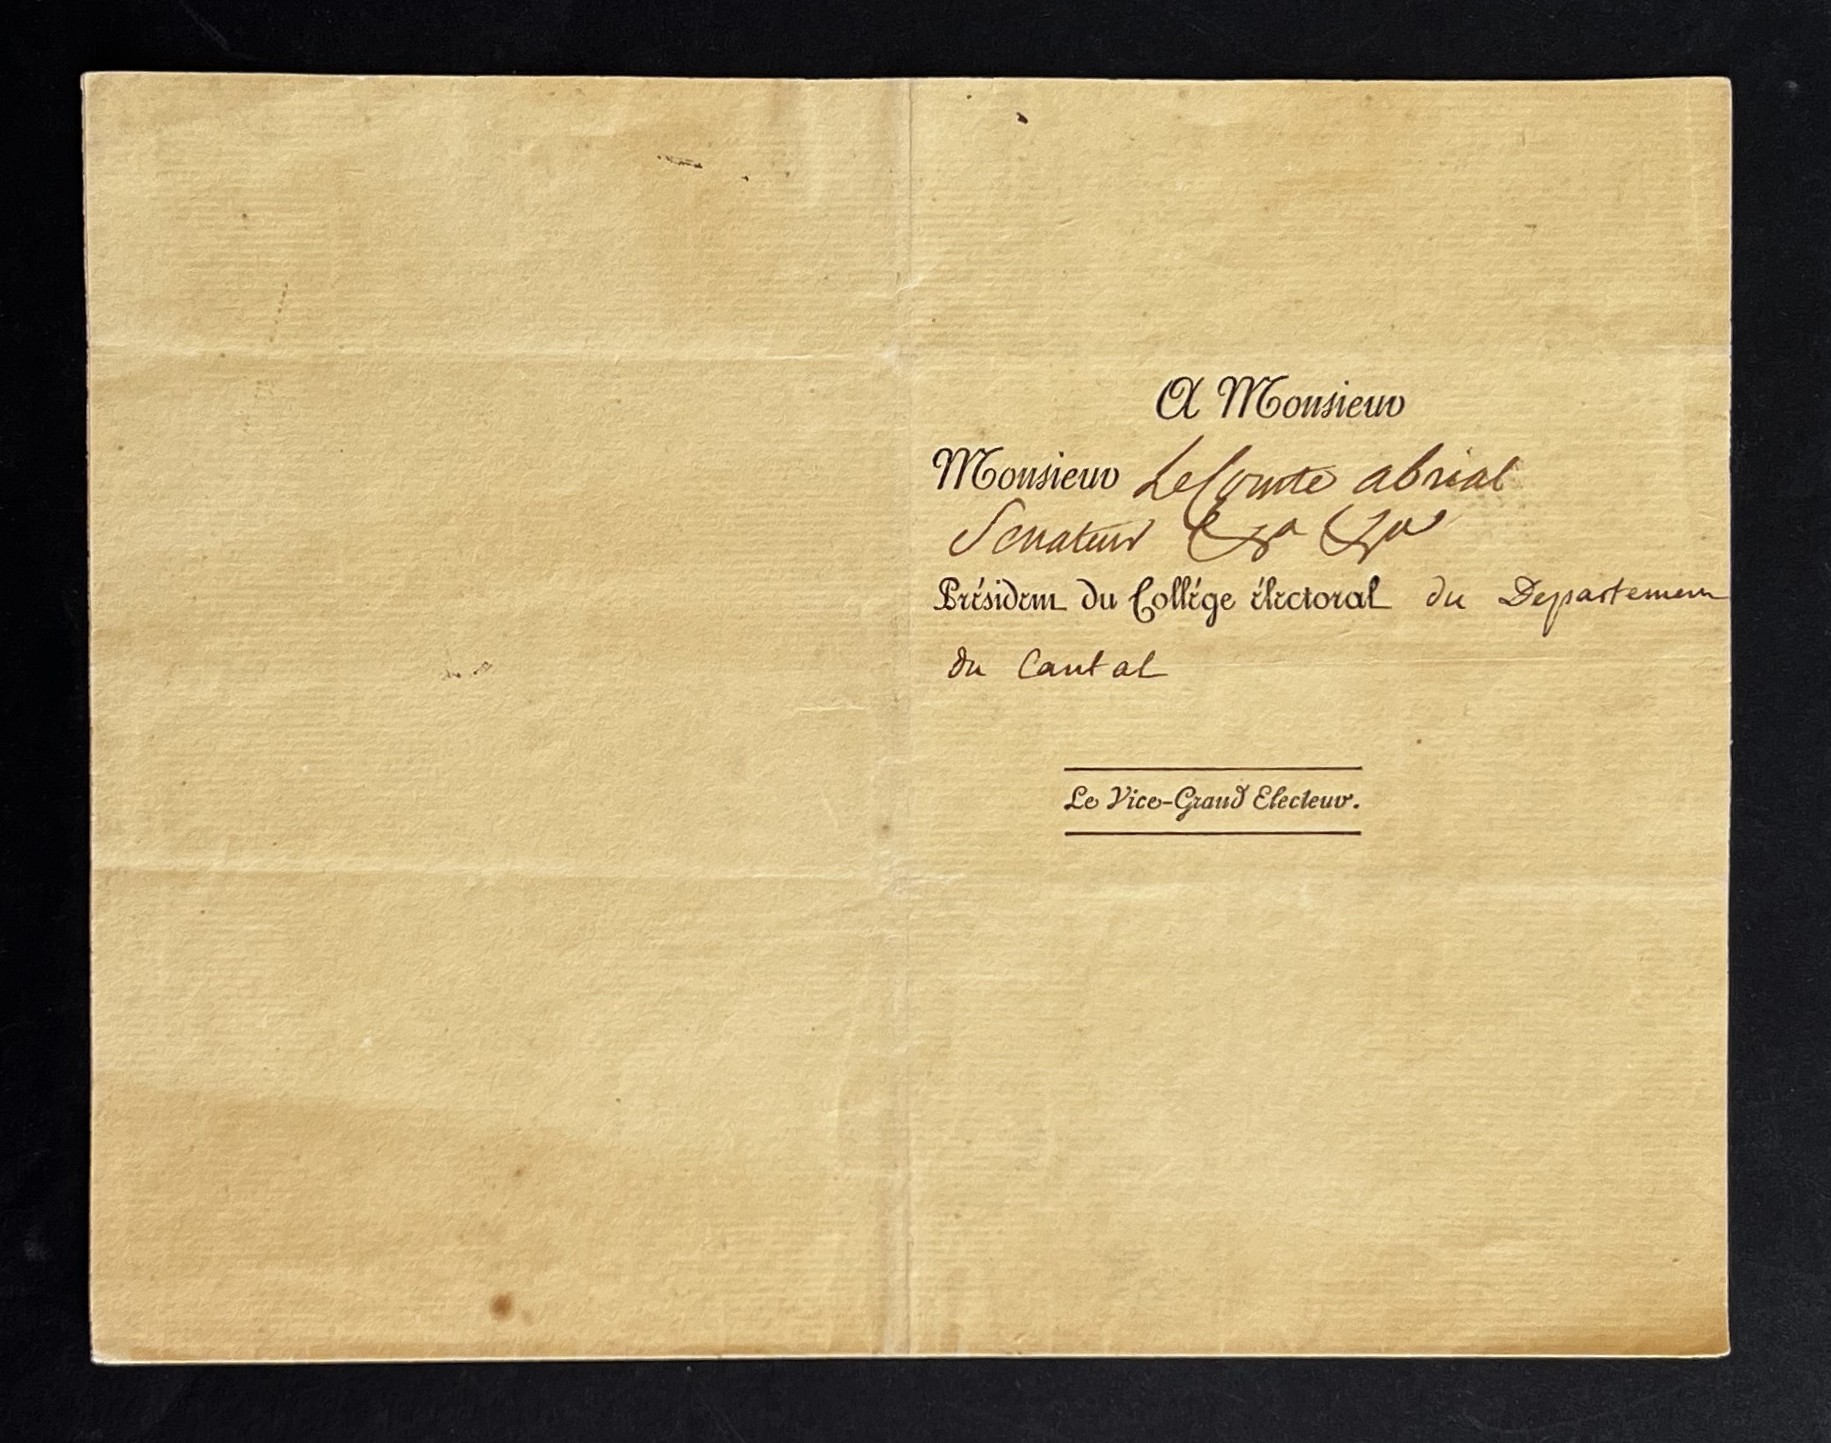 A Monsieur
Monsieur Le Comte abrial
Senateur &a &a
Président du Collége électoral du Departement
du Cantal
Le Vice-Grand Electeur.